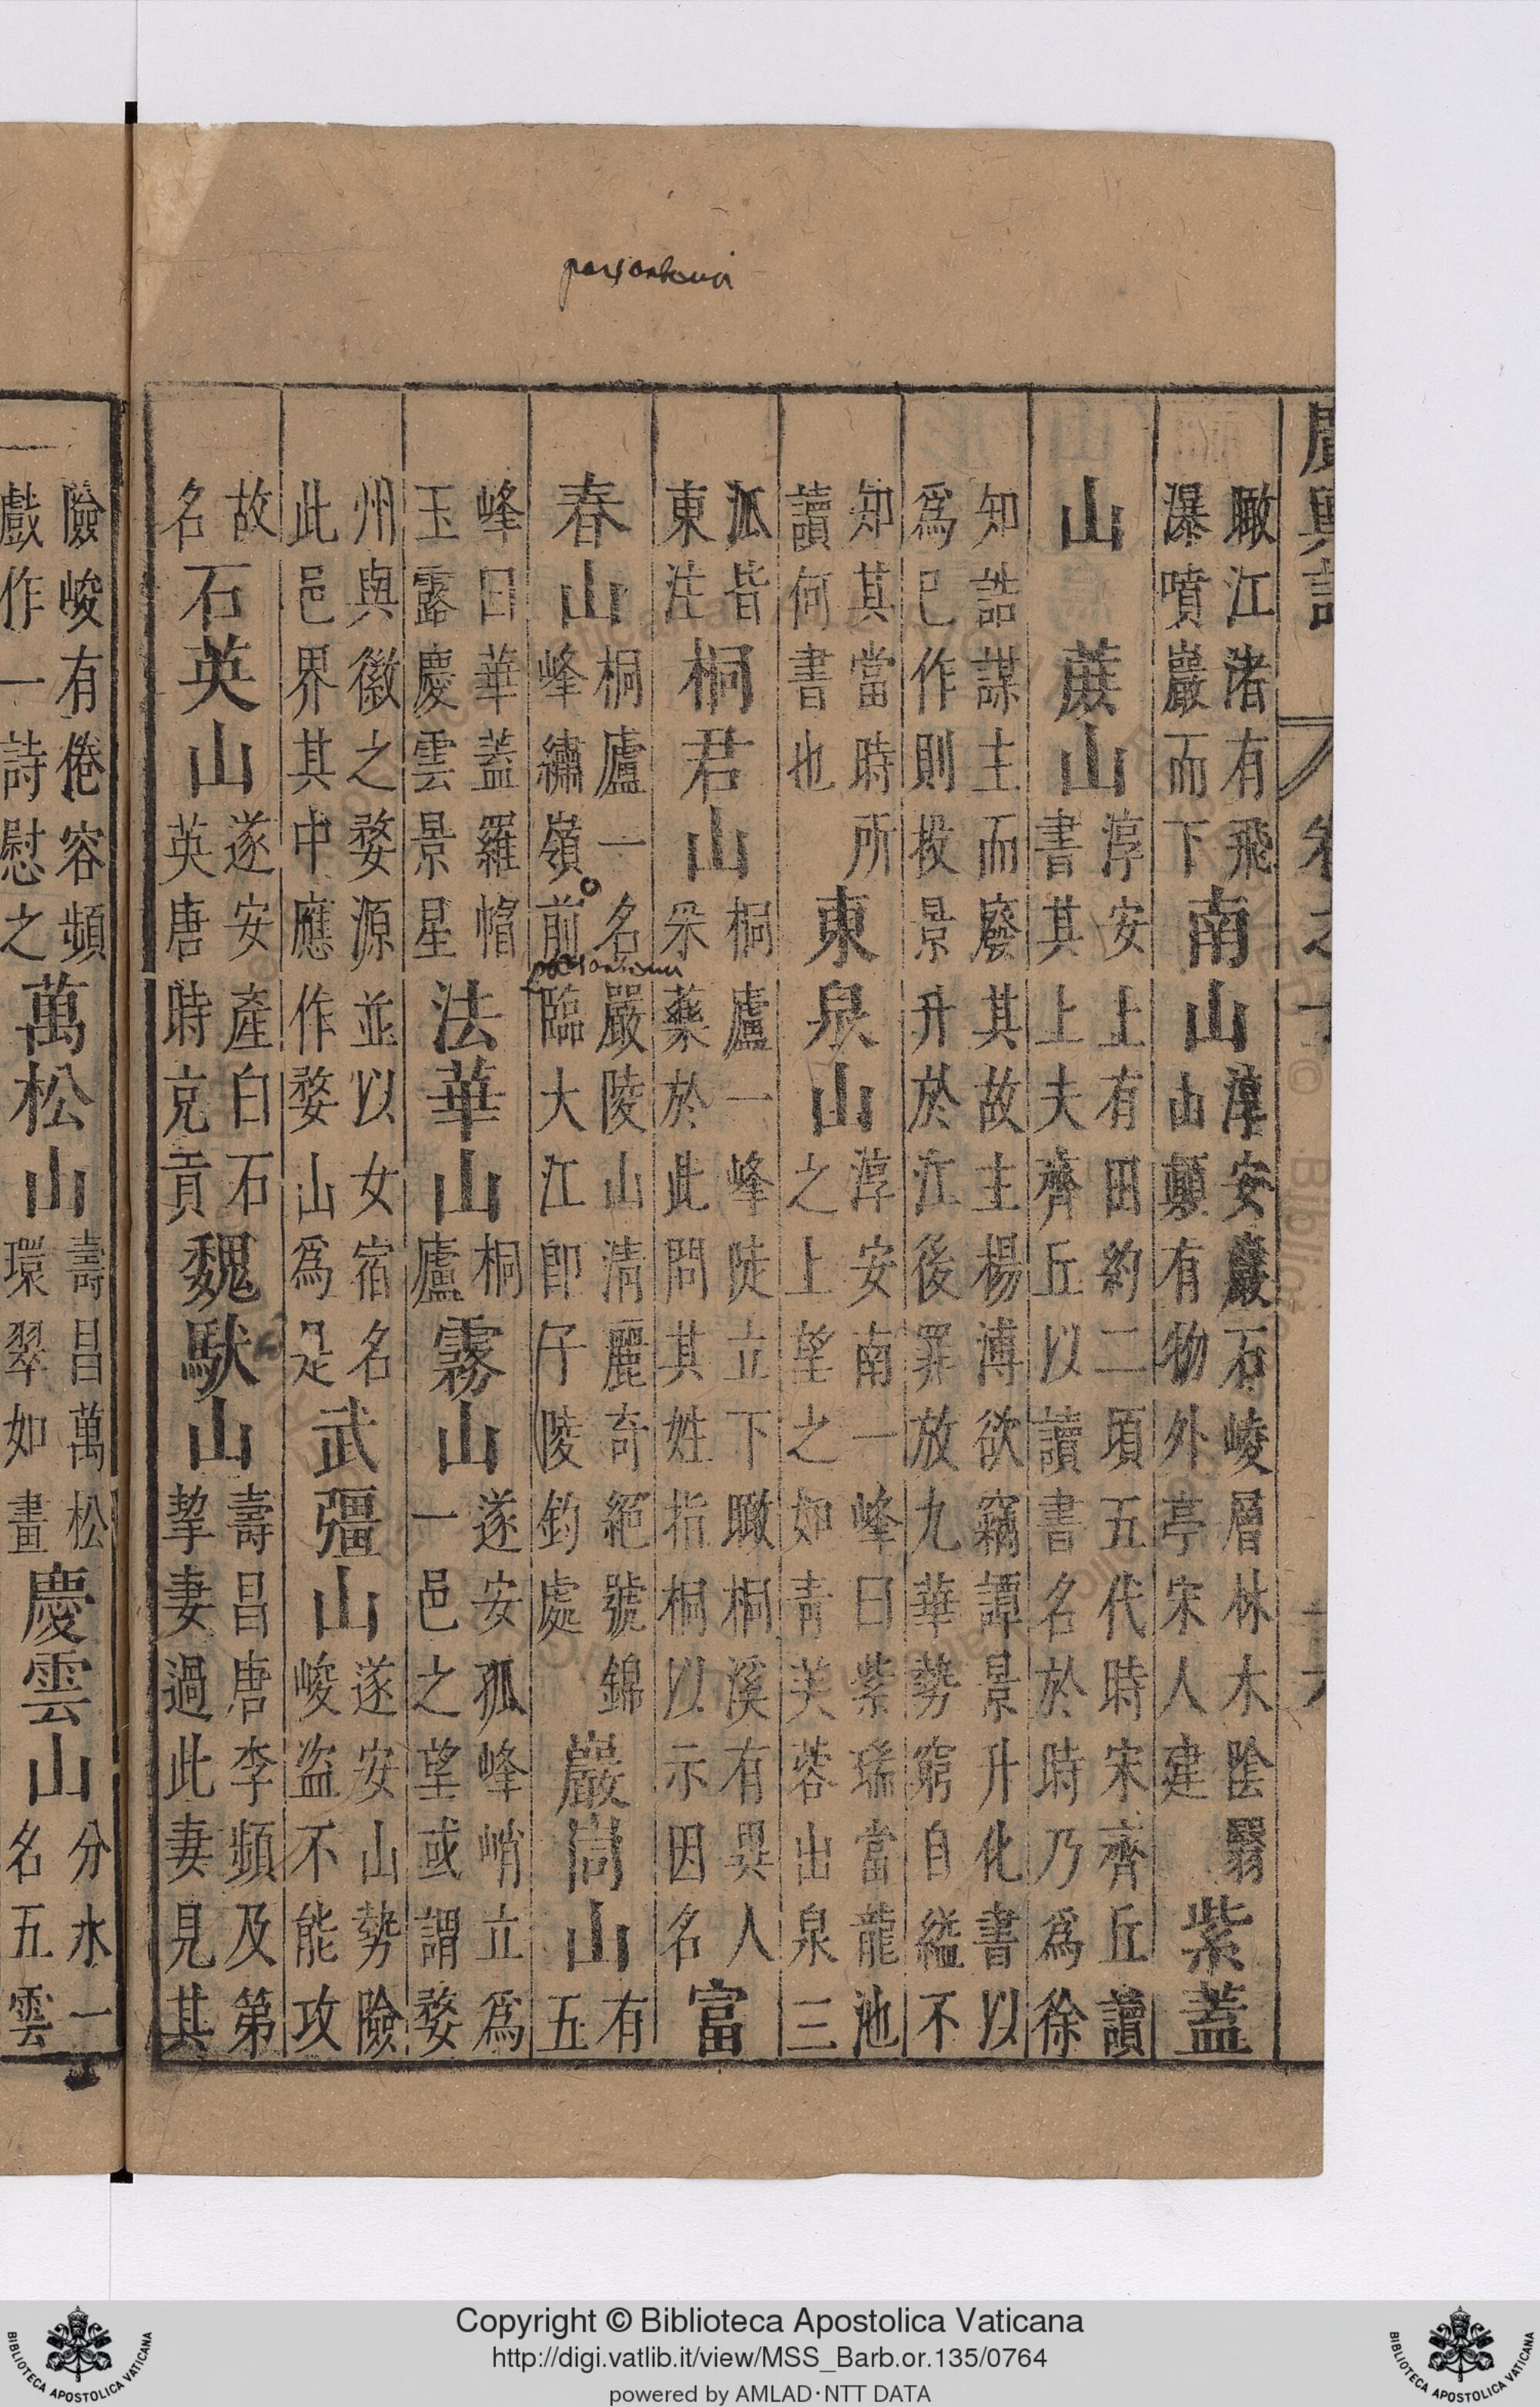 廣輿記 卷之十
瞰江渚有飛瀑噴巖而下南山淳安巖石峻層林木陰翳山顛有物外亭宋人建紫蓋
山 蔗山淳安上有田約二頃五代時宋齊丘讀書其上夫齊丘以讀書名於時乃爲徐
知誥謀主而廢其故主楊溥欲竊譚景升化書以爲己作則投景升於江後罪放九華勢窮自縊不
知其當時所讀何書也東泉山淳安南一峰曰紫瑞當龍池之上望之如青芙蓉出泉三
派皆東注桐君山桐廬一峰陡立下瞰桐溪有異人采藥於此問其姓指桐以示因名富
春山桐廬一名嚴陵山清麗奇絕號錦峰繡嶺前臨大江即子陵釣處巖峝山有五
峰曰華蓋羅帽玉露慶雲景星法華山桐廬霧山遂安孤峰峭立爲一邑之望或謂婺
州與徽之婺源並以女宿名此邑界其中應作婺山爲是武彊山遂安山勢險峻盜不能攻
故名石英山遂安產白石英唐時充貢魏馱山壽昌唐李頻及第挈妻過此妻見其
險峻有倦容頻戲作一詩慰之萬松山壽昌萬松環翠如畫慶雲山分水一名五雲
Copyright © Biblioteca Apostolica Vaticana
http://digi.vatlib.it/view/MSS_Barb.or.135/0764
powered by AMLAD·NTT DATA
BIBLIOTECA APOSTOLICA VATICANA
BIBLIOTECA APOSTOLICA VATICANA